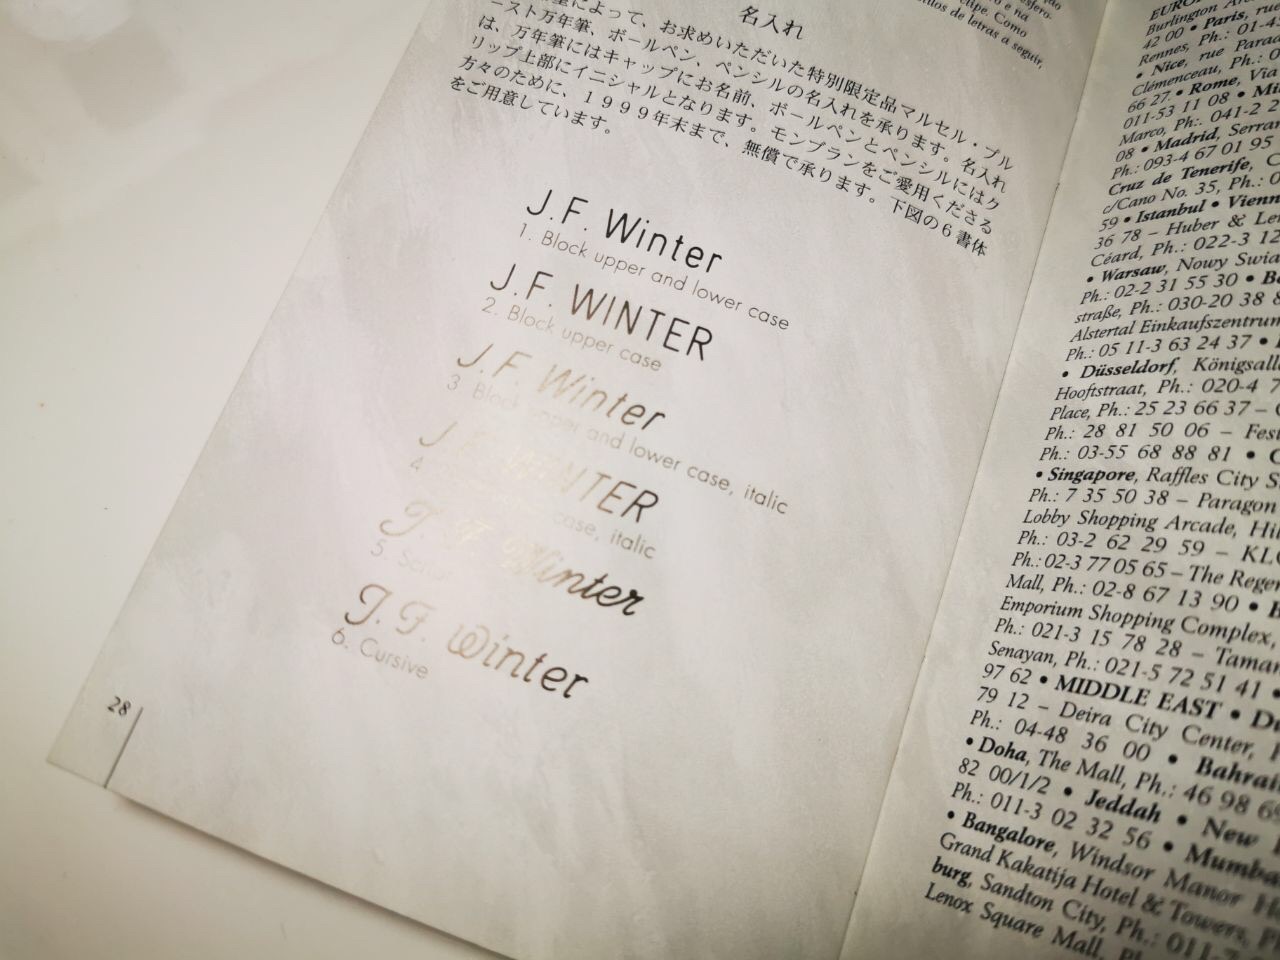 名入れ
によって、お求めいただいた特別限定品マルセル・プル
ースト万年筆、ボールペン、ペンシルの名入れを承ります。名入れ
は、万年筆にはキャップにお名前、ボールペンとペンシルにはク
リップ上部にイニシャルとなります。モンブランをご愛用くださる
方々のために、1999年末まで、無償で承ります。下図の6書体
をご用意しています。
J.F. Winter
1. Block upper and lower case
J.F. WINTER
2. Block upper case
J.F. Winter
3. Block upper and lower case, italic
J.F. WINTER
4. case, italic
J.F. Winter
5.
J.F. Winter
6. Cursive
28
e na
Como
de letras a seguir,
Burlington
42 00 • Paris, rue
Rennes, Ph.: 01-4
• Nice, rue Parad
Clémenceau, Ph.: 0
66 27. • Rome, Via
011-53 11 08 • Mi
Marco, Ph:. 041-2 2
08 • Madrid, Serran
Ph.: 093-4 67 01 95
Cruz de Tenerife, C
c/Cano No. 35, Ph.: 0
59 • Istanbul • Vienn
36 78 – Huber & Ler
Céard, Ph.: 022-3 12
• Warsaw, Nowy Swia
Ph.: 02-2 31 55 30 • Be
straße, Ph.: 030-20 38 8
Alstertal Einkaufszentrum
Ph.: 05 11-3 63 24 37 •
• Düsseldorf, Königsall
Hooftstraat, Ph.: 020-4 7
Place, Ph.: 25 23 66 37 –
Ph.: 28 81 50 06 – Fest
Ph.: 03-55 68 88 81 •
• Singapore, Raffles City S
Ph.: 7 35 50 38 – Paragon
Lobby Shopping Arcade, Hil
Ph.: 03-2 62 29 59 – KLC
Ph.: 02-3 77 05 65 – The Reger
Mall, Ph.: 02-8 67 13 90 •
Emporium Shopping Complex,
Ph.: 021-3 15 78 28 – Taman
Senayan, Ph.: 021-5 72 51 41 •
97 62 • MIDDLE EAST •
79 12 – Deira City Center,
Ph.: 04-48 36 00 • Bahrain
• Doha, The Mall, Ph.: 46 98 6
82 00/1/2 • Jeddah • New
Ph.: 011-3 02 32 56 • Mumba
• Bangalore, Windsor Manor
Grand Kakatija Hotel & Towers,
burg, Sandton City, Ph.: 011-7
Lenox Square Mall,